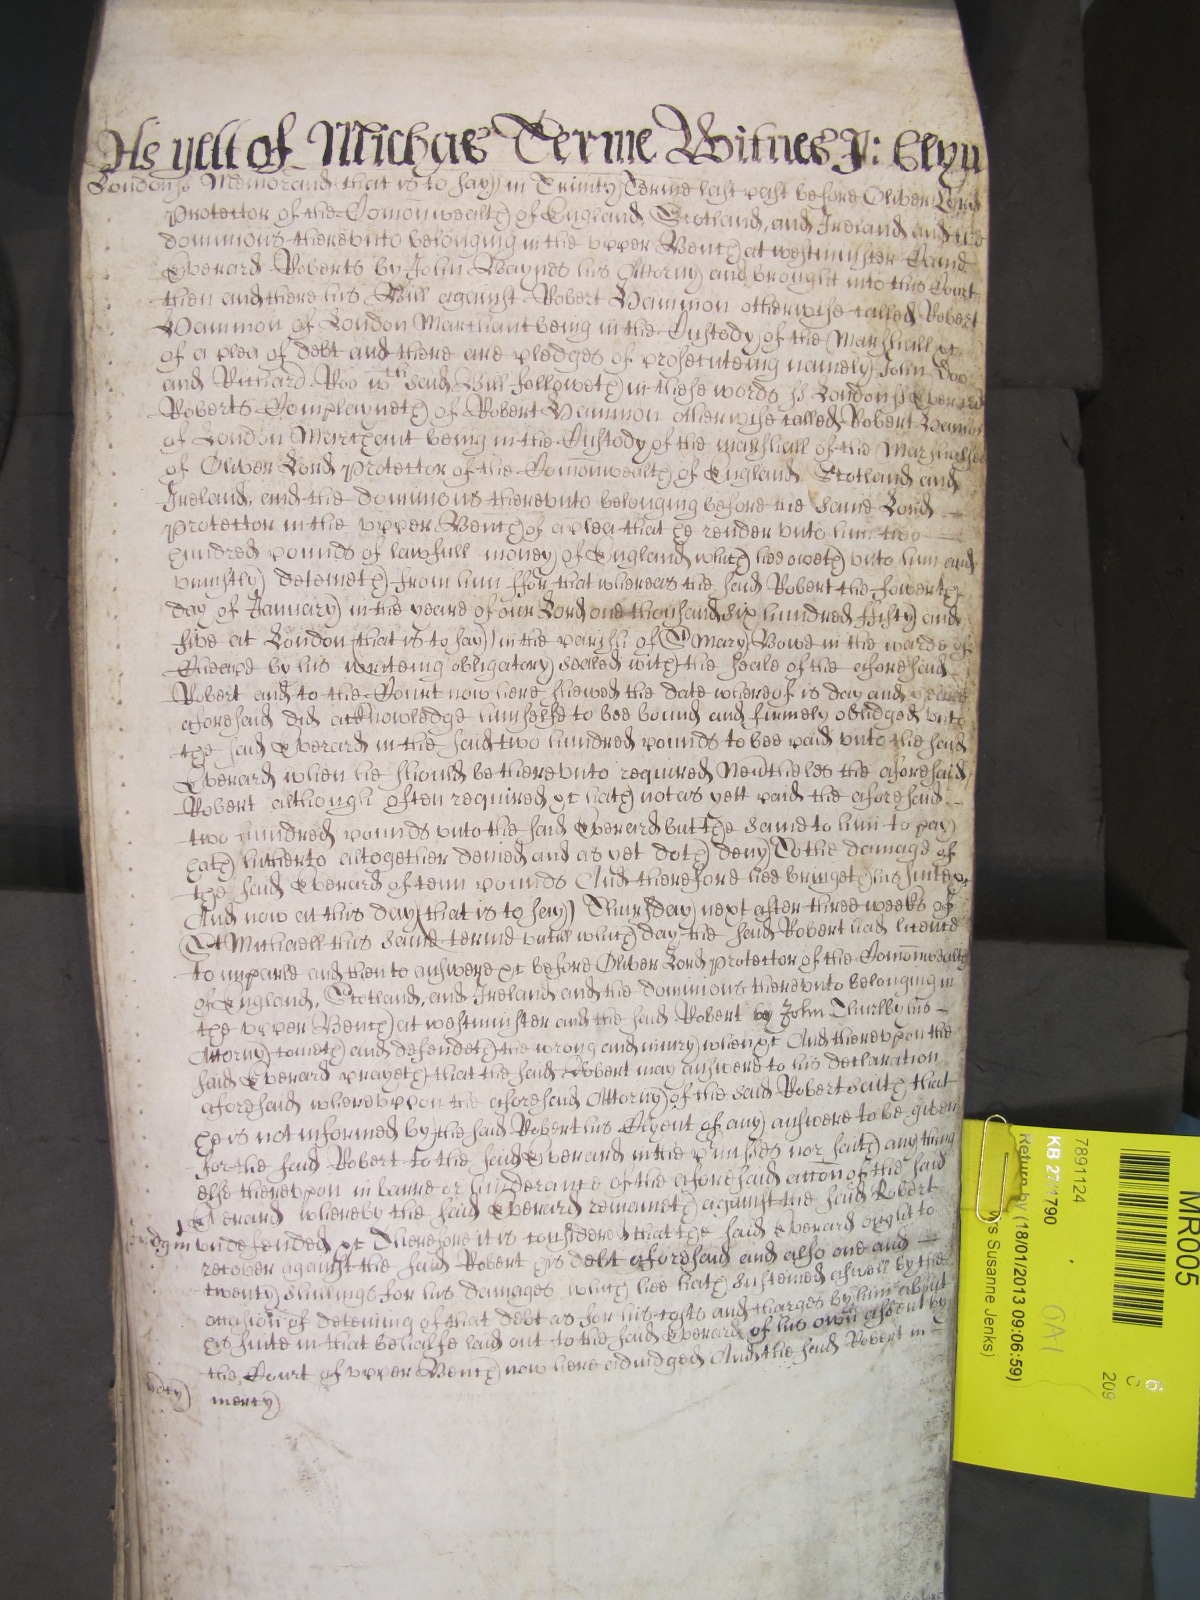 As yett of Michas Terme Witnes J: Glyn
London ss Memorand that is to say in Trinity Terme last past before Oliver Lord
Protector of the Comonwealth of England, Scotland, and Ireland and the
dominions thereunto belonging in the upper Bench at westminster Came
Everard Roberts by John Baynes his Attorny and brought into this Court
then and there his Bill against Robert Hammon otherwise called Robert
Hammon of London Marchant being in the Custody of the Marshall &c
of a plea of debt and there are pledges of prosecuteing namely John Doo
and Richard Roo wch said Bill followeth in these words ss London ss Everard
Roberts Complayneth of Robert Hammon otherwise called Robert Hamon
of London Marchant being in the Custody of the marshall of the Marshalsea
of Oliver Lord Protector of the Comonwealth of England Scotland and
Ireland, and the dominions thereunto belonging before the same Lord
Protector in the upper Bench of a plea that he render unto him two
hundred pounds of lawfull money of England which hee oweth unto him and
uniustly deteineth from him ffor that whereas the said Robert the fowerth
day of January in the yeare of our Lord one thousand six hundred fifty and
five at London that is to say in the parish of St Mary Bowe in the warde of
Cheape by his writeing obligatory sealed with the seale of the aforesaid
Robert and to the Court now here shewed the date whereof is day and yeare
aforesaid did acknowledge himselfe to bee bound and firmely obliged unto
the said Everard in the said two hundred pounds to bee paid unto the said
Everard when he should be thereunto required Neutheles the aforesaid
Robert although often required &c hath not as yett paid the aforesaid
two hundred pounds unto the said Everard but the same to him to pay
hath hitherto altogether denied and as yet doth deny To the damage of
the said Everard of tenn pounds And therefore hee bringeth his suite &c
And now at this day that is to say Thursday next after three weeks of
St Michaell this same terme untill which day the said Robert had licence
to imparle and then to answere &c before Oliver Lord Protector of the Comonwealth
of England, Scotland, and Ireland and the dominions thereunto belonging in
the upper Bench at westminster and the said Robert by John Thurlby his
Attorny cometh and defendeth the wrong and iniury when &c And thereupon the
said Everard prayeth that the said Robert may answere to his declaration
aforesaid whereuppon the aforesaid Attorny of the said Robert saith that
he is not informed by the said Robert his Clyent of any answere to be given
for the said Robert to the said Everard in the premisses nor saith any thing
else thereupon in barre or hinderance of the aforesaid accon of the said
Everard whereby the said Everard remaineth against the said Robert
Judgm undefended &c Therefore it is considered that the said Everard ought to
recover against the said Robert his debt aforesaid and also one and
twenty shillings for his damages which hee hath susteined aswell by the
occasion of deteining of that debt as for his costs and charges by him about
his suite in that behalfe laid out to the said Everard of his own assent by
the Court of upper Bench now here adiudged And the said Robert in
mercy
MR005
7891124
KB 27/1790
Return by (18/01/2013 09:06:59)
Susanne Jenks)
6
C
209